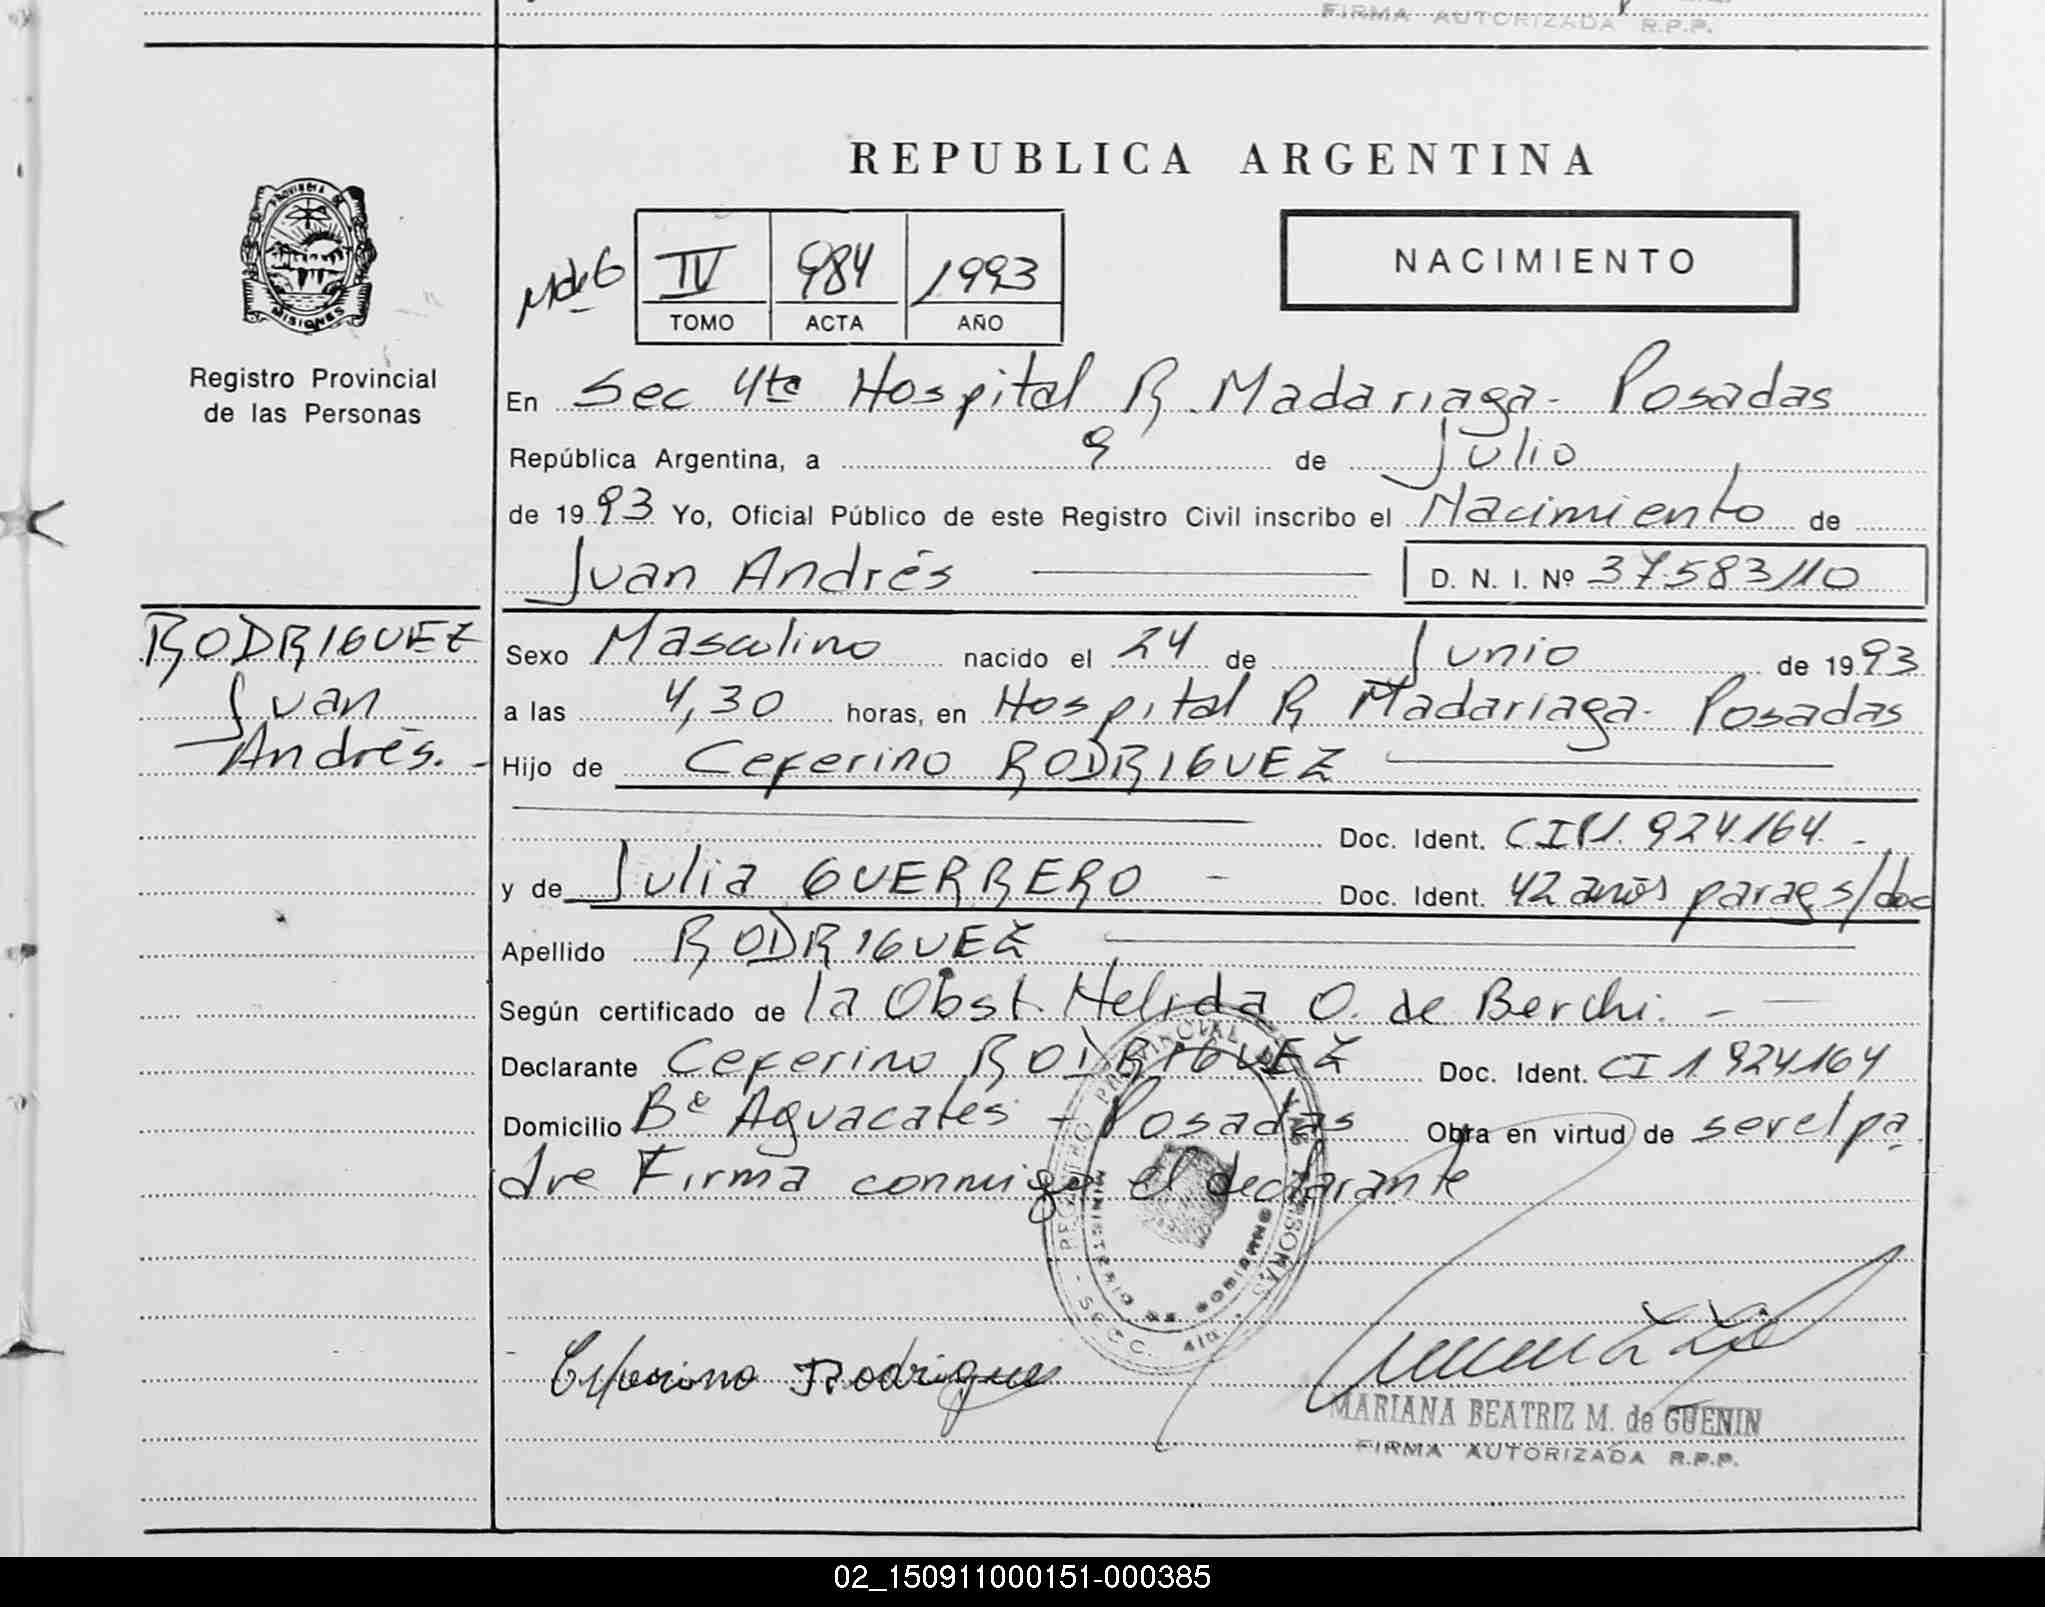 FIRMA AUTORIZADA R.P.P.
REPUBLICA ARGENTINA
PROVINCIA DE
MISIONES
Registro Provincial
de las Personas
MdeG
IV 984 1993
TOMO ACTA AÑO
NACIMIENTO
En Sec 4ta Hospital R. Madariaga - Posadas
República Argentina, a 9 de Julio
de 1993 Yo, Oficial Público de este Registro Civil inscribo el Nacimiento de
Juan Andrés D. N. I. Nº 37.583110
RODRIGUEZ
Juan
Andrés.-
Sexo Masculino nacido el 24 de Junio de 1993
a las 4,30 horas, en Hospital R Madariaga - Posadas
Hijo de Ceferino RODRIGUEZ
Doc. Ident. CI Nº 1.924.164.-
y de Julia GUERRERO - Doc. Ident. 42 años parag s/doc
Apellido RODRIGUEZ
Según certificado de la Obst. Helida O. de Berchi. -
Declarante Ceferino RODRIGUEZ Doc. Ident. CI 1924164
Domicilio Bº Aguacates - Posadas Obra en virtud de ser el pa
dre Firma conmigo el declarante
REGISTRO PROVINCIAL DE LAS PERSONAS
MINISTERIO DE GOBIERNO
Ceferino Rodriguez
MARIANA BEATRIZ M. de GUENIN
FIRMA AUTORIZADA R.P.P.
02_150911000151-000385